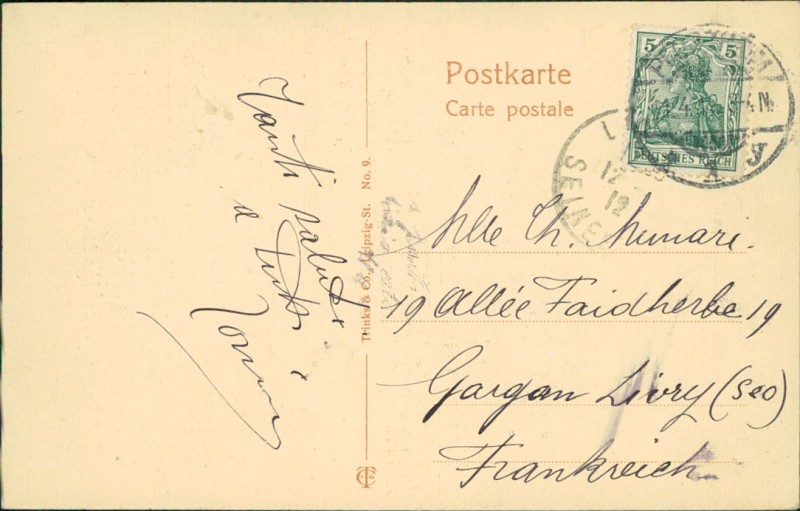 Postkarte
Carte postale
5 5
DEUTSCHES REICH
SEINE
12
Tanti saluti
a tutti
Trinks & Co., Leipzig-St. No. 9.
Mlle Ch. Munari.
19 Allée Faidherbe 19
Gargan Livry (Seo)
Frankreich